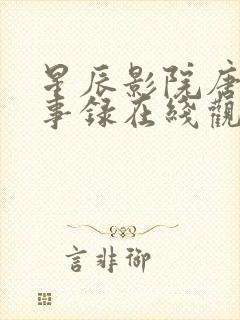 星辰影院唐
事録在綫觀
言非御